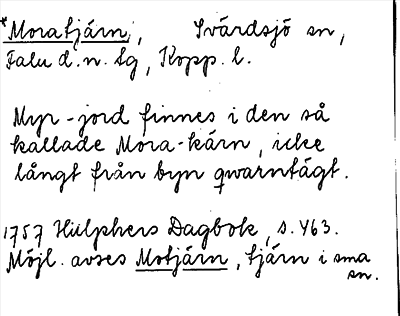 *Moratjärn, Svärdsjö sn,
Falu d.n. tg, Kopp. l.
Myr-jord finnes i den så
kallade Mora-kärn, icke
långt från byn qwarntägt.
1757 Hülphers Dagbok, s. 463.
Möjl. avses Motjärn, tjärn i sma
sn.